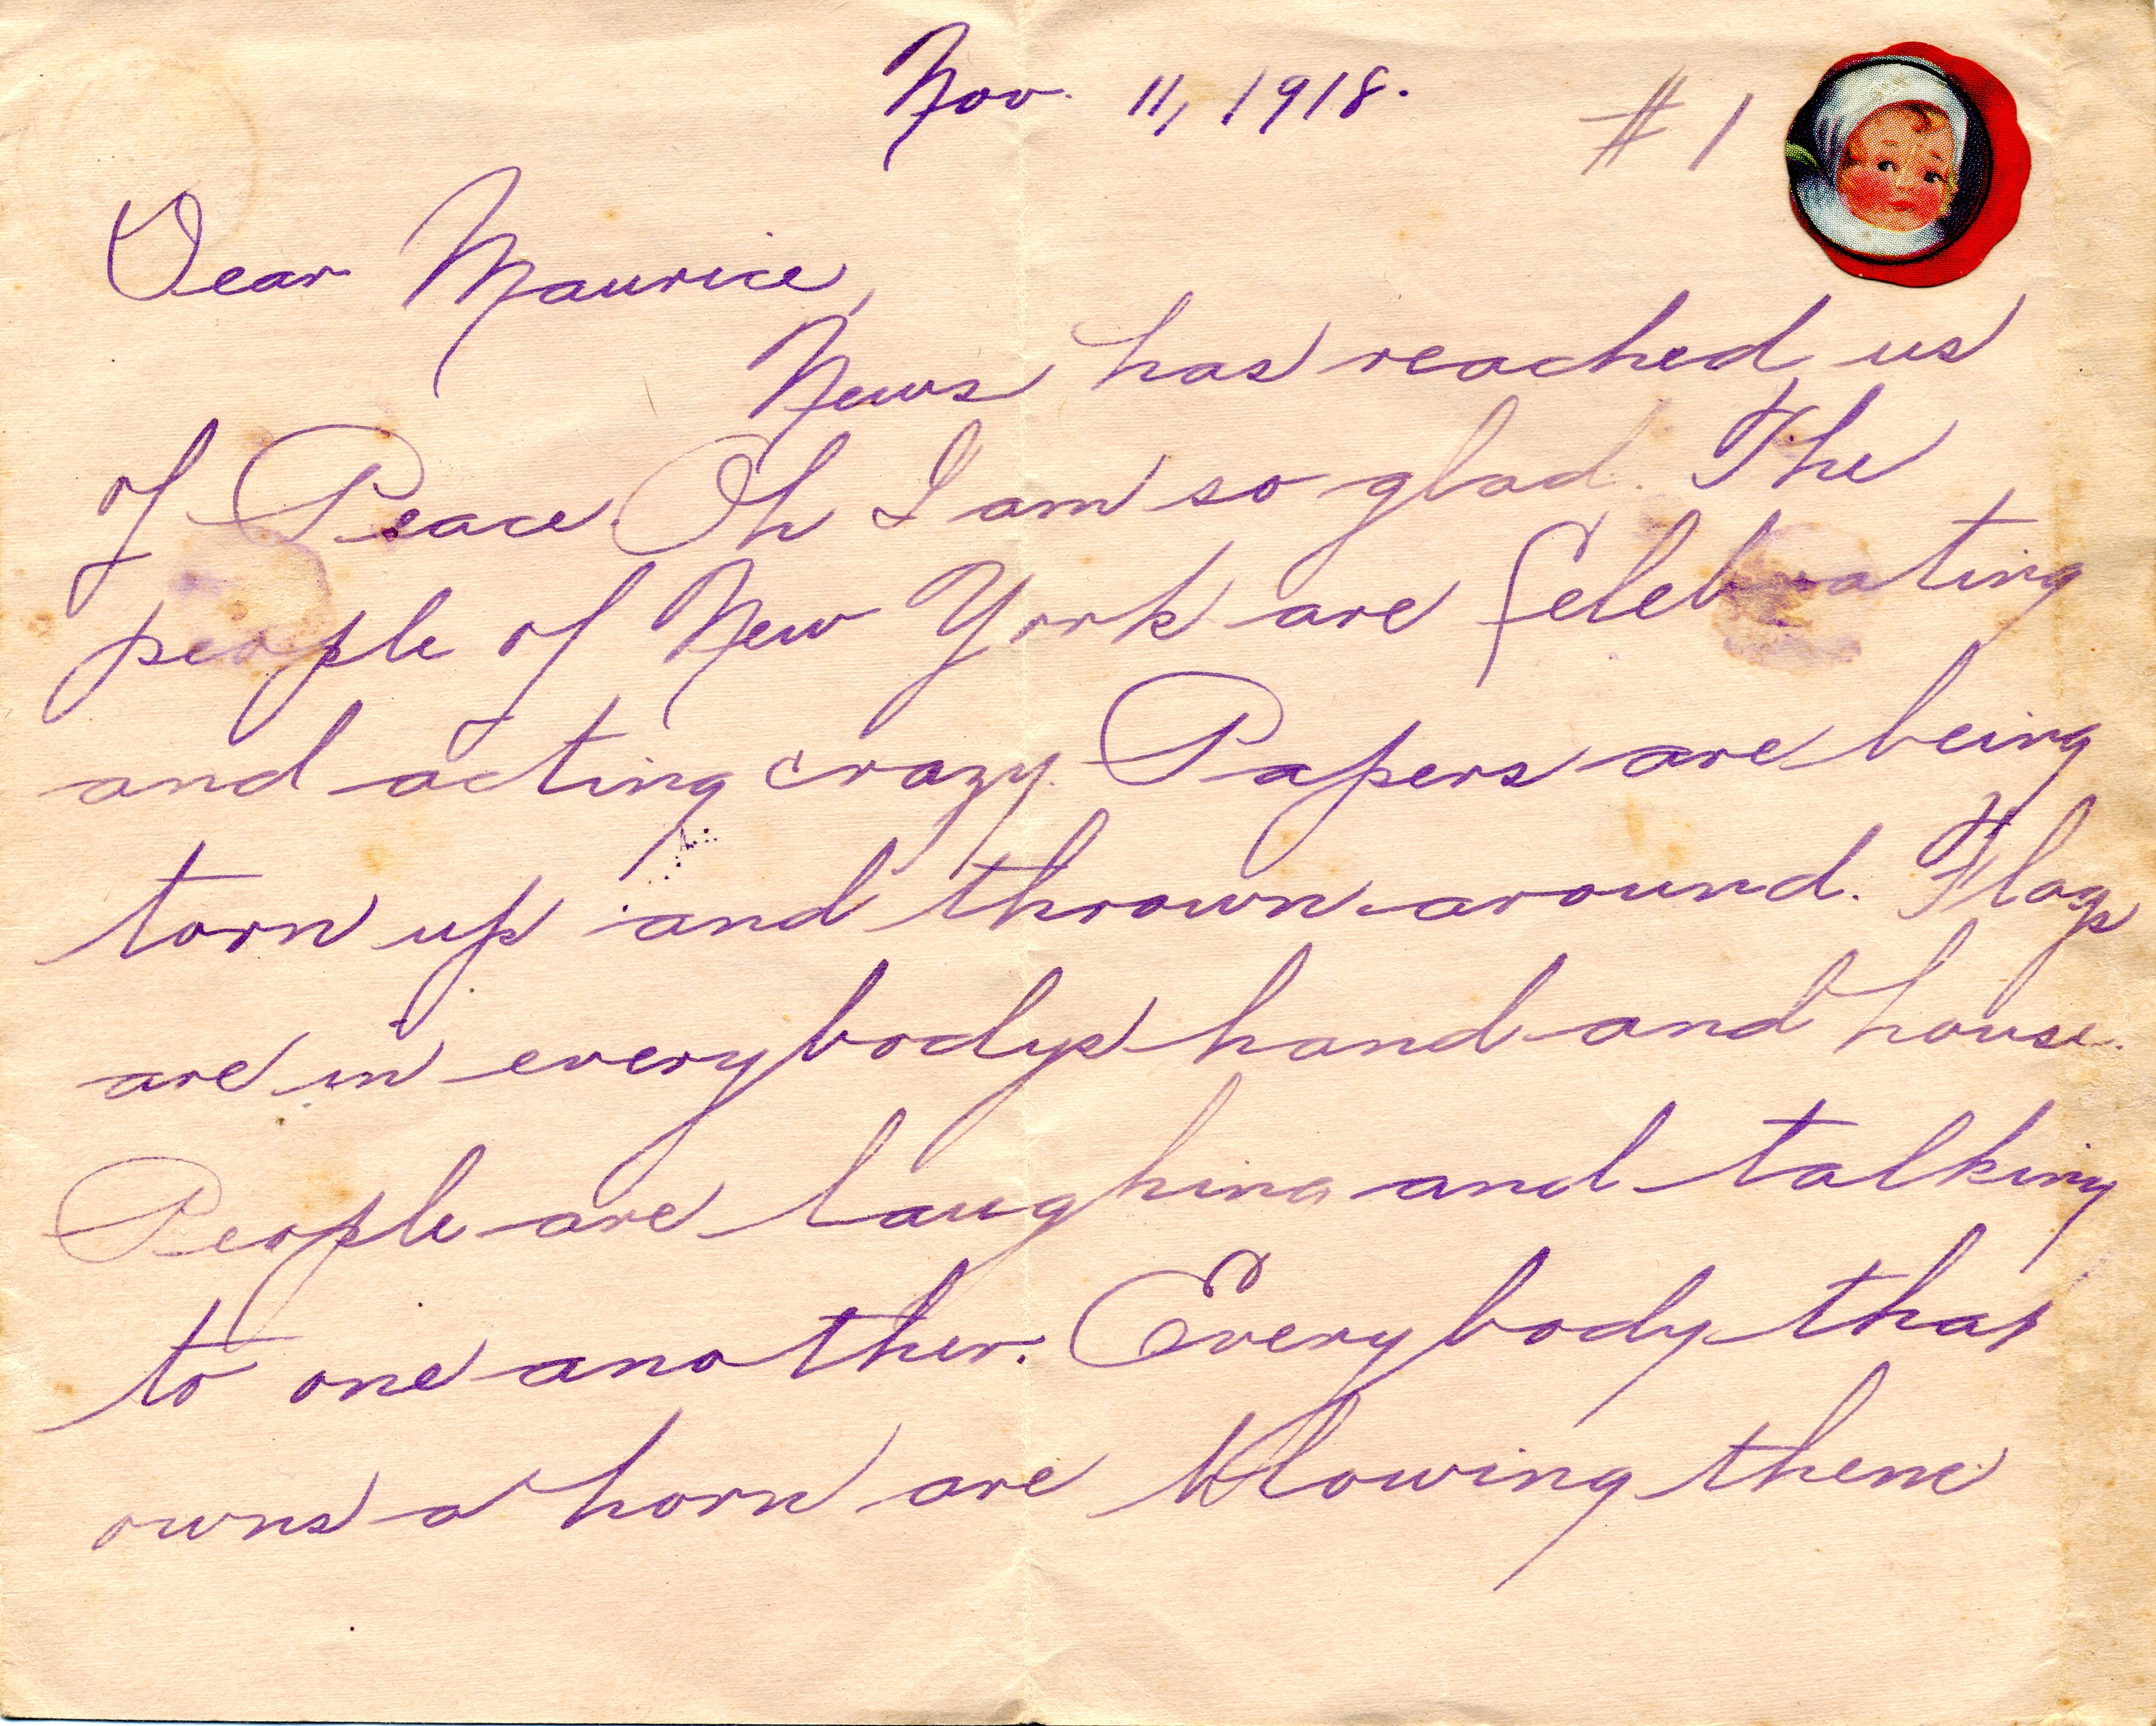 Nov. 11, 1918.
#1
Dear Maurice,
News has reached us
of Peace. Oh I am so glad. The
people of New York are Celebrating
and acting crazy. Papers are being
torn up and thrown around. Flags
are in everybodys hand and house.
People are laughing and talking
to one another. Everybody that
owns a horn are blowing them